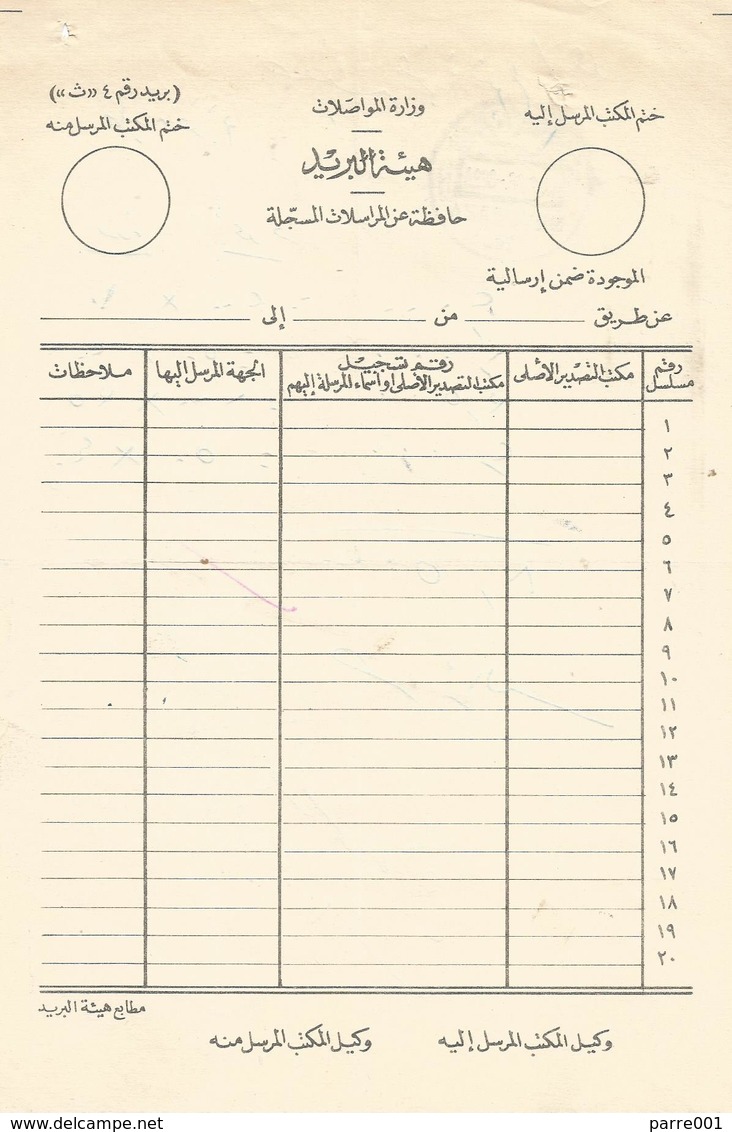 (بريد رقم ٤ «ث»)
ختم المكتب المرسل إليه
وزارة المواصلات
ختم المكتب المرسل منه
هيئة البريد
حافظة عن المراسلات المسجّلة
الموجودة ضمن إرسالية
عن طريق ــــــ من ــــــ إلى ــــــ
رقم مسلسل
مكتب التصدير الأصلى
رقم تسجيل
مكتب التصدير الأصلى او أسماء المرسلة إليهم
الجهة المرسل إليها
ملاحظات
١
٢
٣
٤
٥
٦
٧
٨
٩
١٠
١١
١٢
١٣
١٤
١٥
١٦
١٧
١٨
١٩
٢٠
مطابع هيئة البريد
وكيل المكتب المرسل إليه
وكيل المكتب المرسل منه
www.delcampe.net
parre001